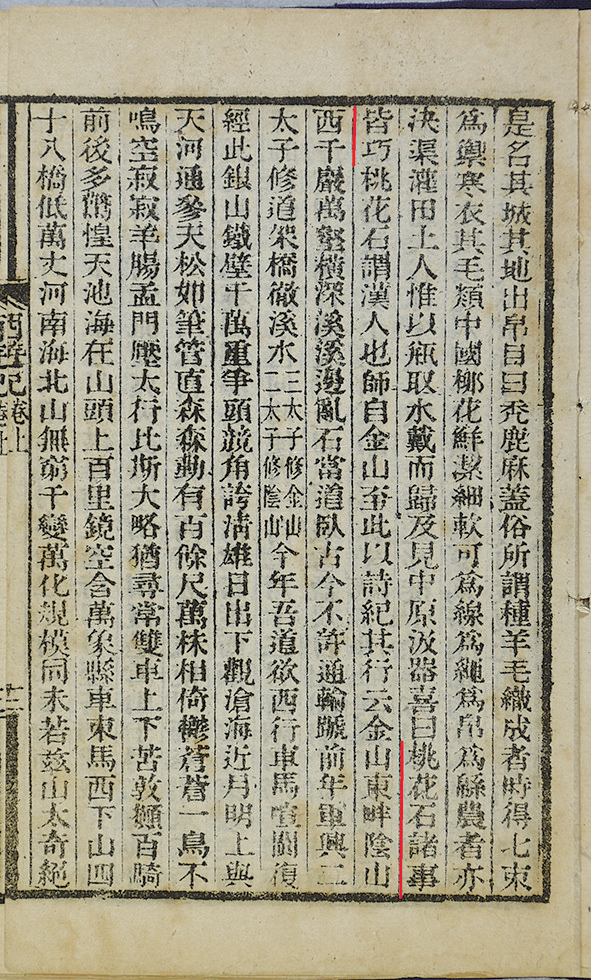 是名其城其地出帛目曰禿鹿麻蓋俗所謂種羊毛織成者時得七束
爲禦寒衣其毛類中國柳花鮮潔細軟可爲線爲繩爲帛爲緜農者亦
決渠灌田土人惟以瓶取水戴而歸及見中原汲器喜曰桃花石諸事
皆巧桃花石謂漢人也師自金山至此以詩紀其行云金山東畔陰山
西千巖萬壑橫深溪溪邊亂石當道臥古今不許通輪蹄前年軍興二
太子修道架橋徹溪水三太子修金山二太子修陰山今年吾道欲西行車馬喧闐復
經此銀山鐵壁千萬重爭頭競角誇清雄日出下觀滄海近月明上與
天河通參天松如筆管直森森動有百餘尺萬株相倚鬱蒼蒼一鳥不
鳴空寂寂羊腸孟門壓太行比斯大略猶尋常雙車上下苦敦攧百騎
前後多驚惶天池海在山頭上百里鏡空含萬象縣車束馬西下山四
十八橋低萬丈河南海北山無窮千變萬化規模同未若茲山太奇絕
西遊記卷上